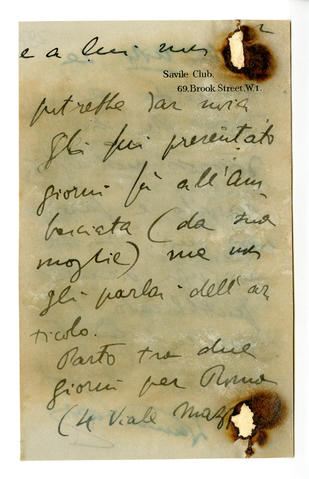 e a lui non
Savile Club.
69, Brook Street, W.1.
potrebbe dar noia
gli fui presentato
giorni fà all'Am
basciata (da sua
moglie) ma non
gli parlai dell'ar
ticolo.
Parto tra due
giorni per Roma
(4 Viale Mazz